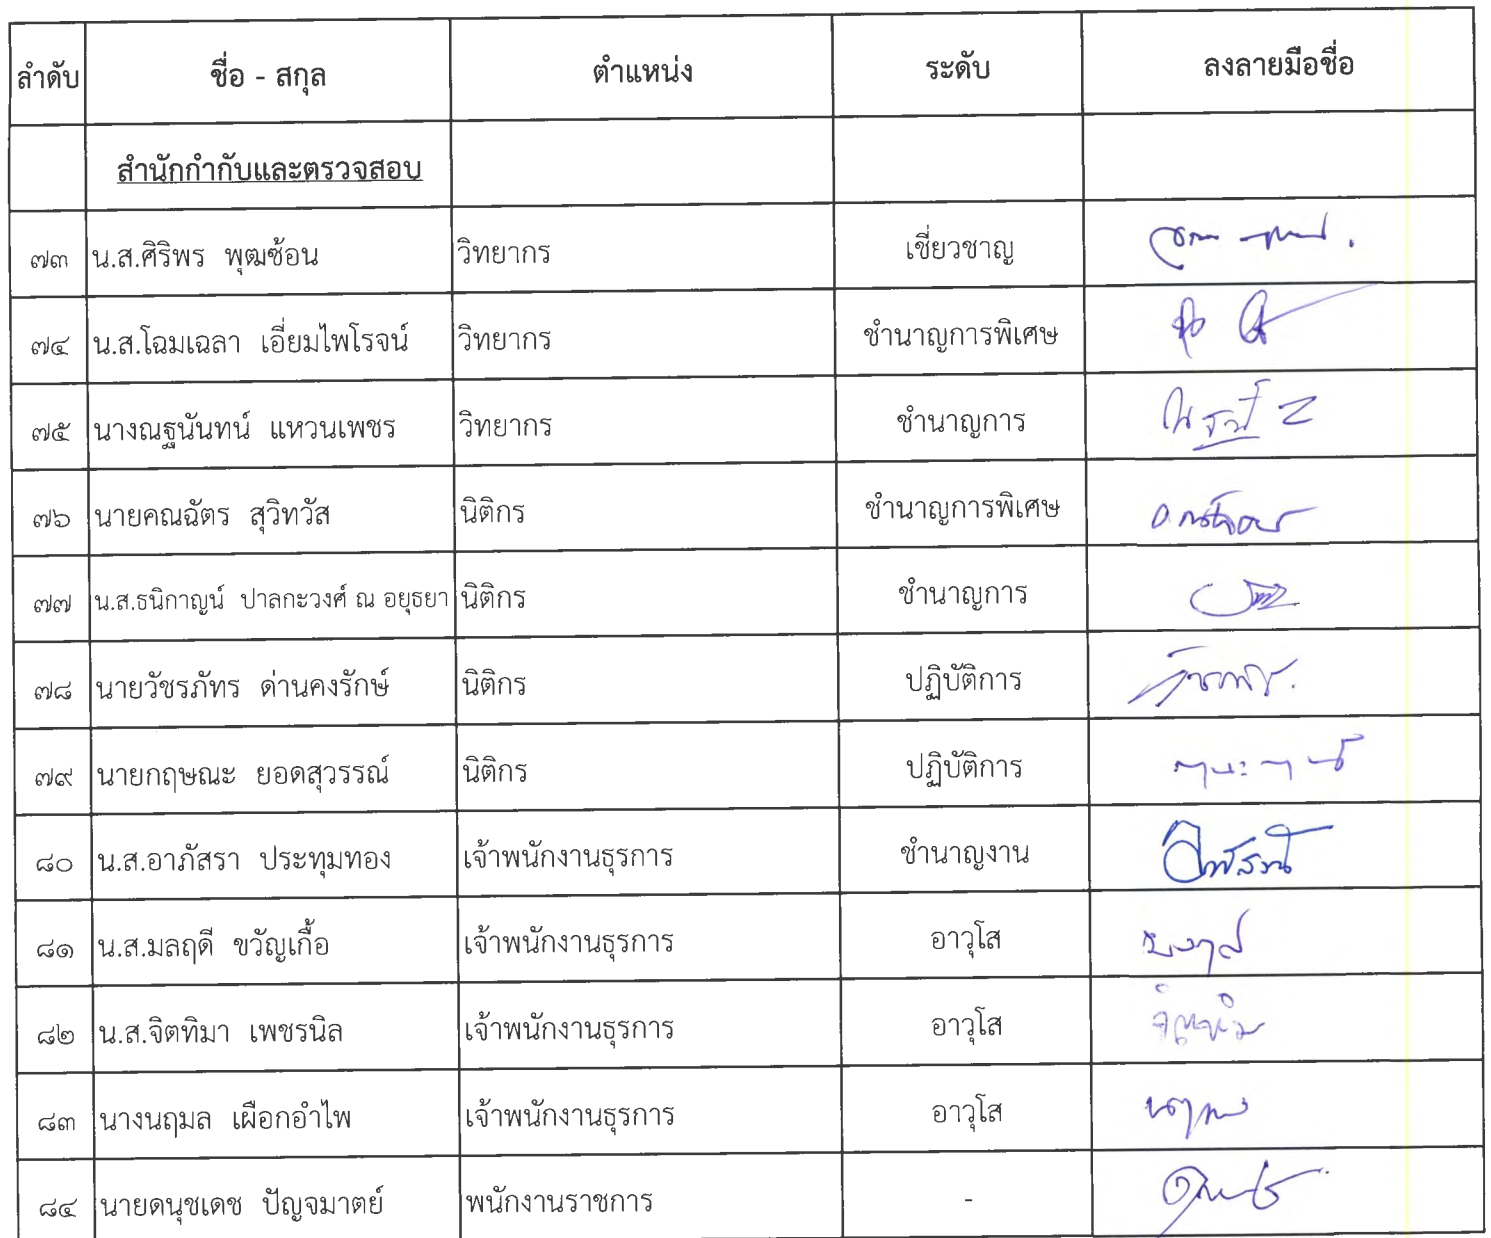 ลำดับ ชื่อ - สกุล ตำแหน่ง ระดับ ลงลายมือชื่อ
สำนักกำกับและตรวจสอบ
๗๓ น.ส.ศิริพร พุฒซ้อน วิทยากร เชี่ยวชาญ
๗๔ น.ส.โฉมเฉลา เอี่ยมไพโรจน์ วิทยากร ชำนาญการพิเศษ
๗๕ นางณฐนันทน์ แหวนเพชร วิทยากร ชำนาญการ
๗๖ นายคณฉัตร สุวิทวัส นิติกร ชำนาญการพิเศษ
๗๗ น.ส.ธนิกาญน์ ปาลกะวงศ์ ณ อยุธยา นิติกร ชำนาญการ
๗๘ นายวัชรภัทร ด่านคงรักษ์ นิติกร ปฏิบัติการ
๗๙ นายกฤษณะ ยอดสุวรรณ์ นิติกร ปฏิบัติการ
๘๐ น.ส.อาภัสรา ประทุมทอง เจ้าพนักงานธุรการ ชำนาญงาน
๘๑ น.ส.มลฤดี ขวัญเกื้อ เจ้าพนักงานธุรการ อาวุโส
๘๒ น.ส.จิตทิมา เพชรนิล เจ้าพนักงานธุรการ อาวุโส
๘๓ นางนฤมล เผือกอำไพ เจ้าพนักงานธุรการ อาวุโส
๘๔ นายดนุชเดช ปัญจมาตย์ พนักงานราชการ -